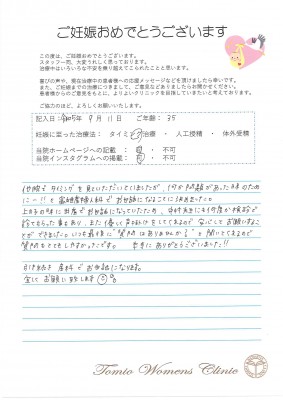 ご妊娠おめでとうございます
この度は、ご妊娠おめでとうございます。
スタッフ一同、大変うれしく思っております。
治療中はいろいろな不安を乗り越えてこられたことと思います。
喜びの声や、現在治療中の患者様への応援メッセージなどを頂けましたら幸いです。
また、妊娠までの治療につきまして、ご意見などありましたら、お寄せください。
患者様からのご意見をもとに、よりよいクリニックを目指していきたいと考えております。
ご協力のほど、よろしくお願いいたします。
記入日:令和5年 9月 11日 ご年齢:35
妊娠に至った治療法: タイミング治療 ・ 人工授精 ・ 体外受精
当院ホームページへの記載 : 可 ・ 不可
当院インスタグラムへの掲載 : 可 ・ 不可
他院でタイミングを見ていただいていましたが、
お世話になることに
上の子の時に出産でお世話になっていたため、
優しく声かけをしてくれるので安心してお願いすること
ができました。いつも最後に"質問はありませんか?"と聞いてくれるので
質問もとてもしやすかったです。本当にありがとうございました!!
引き続き産科でお世話になります。
宜しくお願い致します
Tomio Womens Clinic